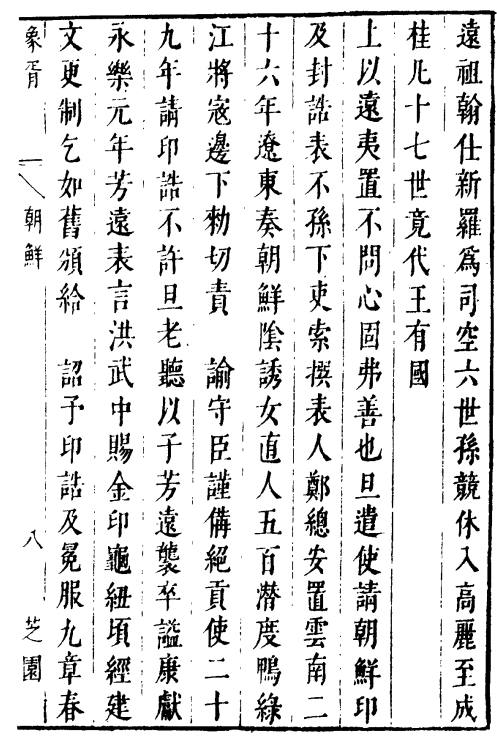 遠祖翰仕新羅爲司空六世孫兢休入高麗至成
桂凡十七世竟代王有國
上以遠夷置不問心固弗善也旦遣使請朝鮮印
及封誥表不孫下吏索撰表人鄭總安置雲南二
十六年遼東奏朝鮮陰誘女直人五百潛度鴨綠
江將寇邊下勑切責 諭守臣謹備絕貢使二十
九年請印誥不許旦老聽以子芳遠襲卒謚康獻
永樂元年芳遠表言洪武中賜金印龜紐頃經建
文更制乞如舊頒給 詔予印誥及冕服九章春
象胥 朝鮮 八 芝園